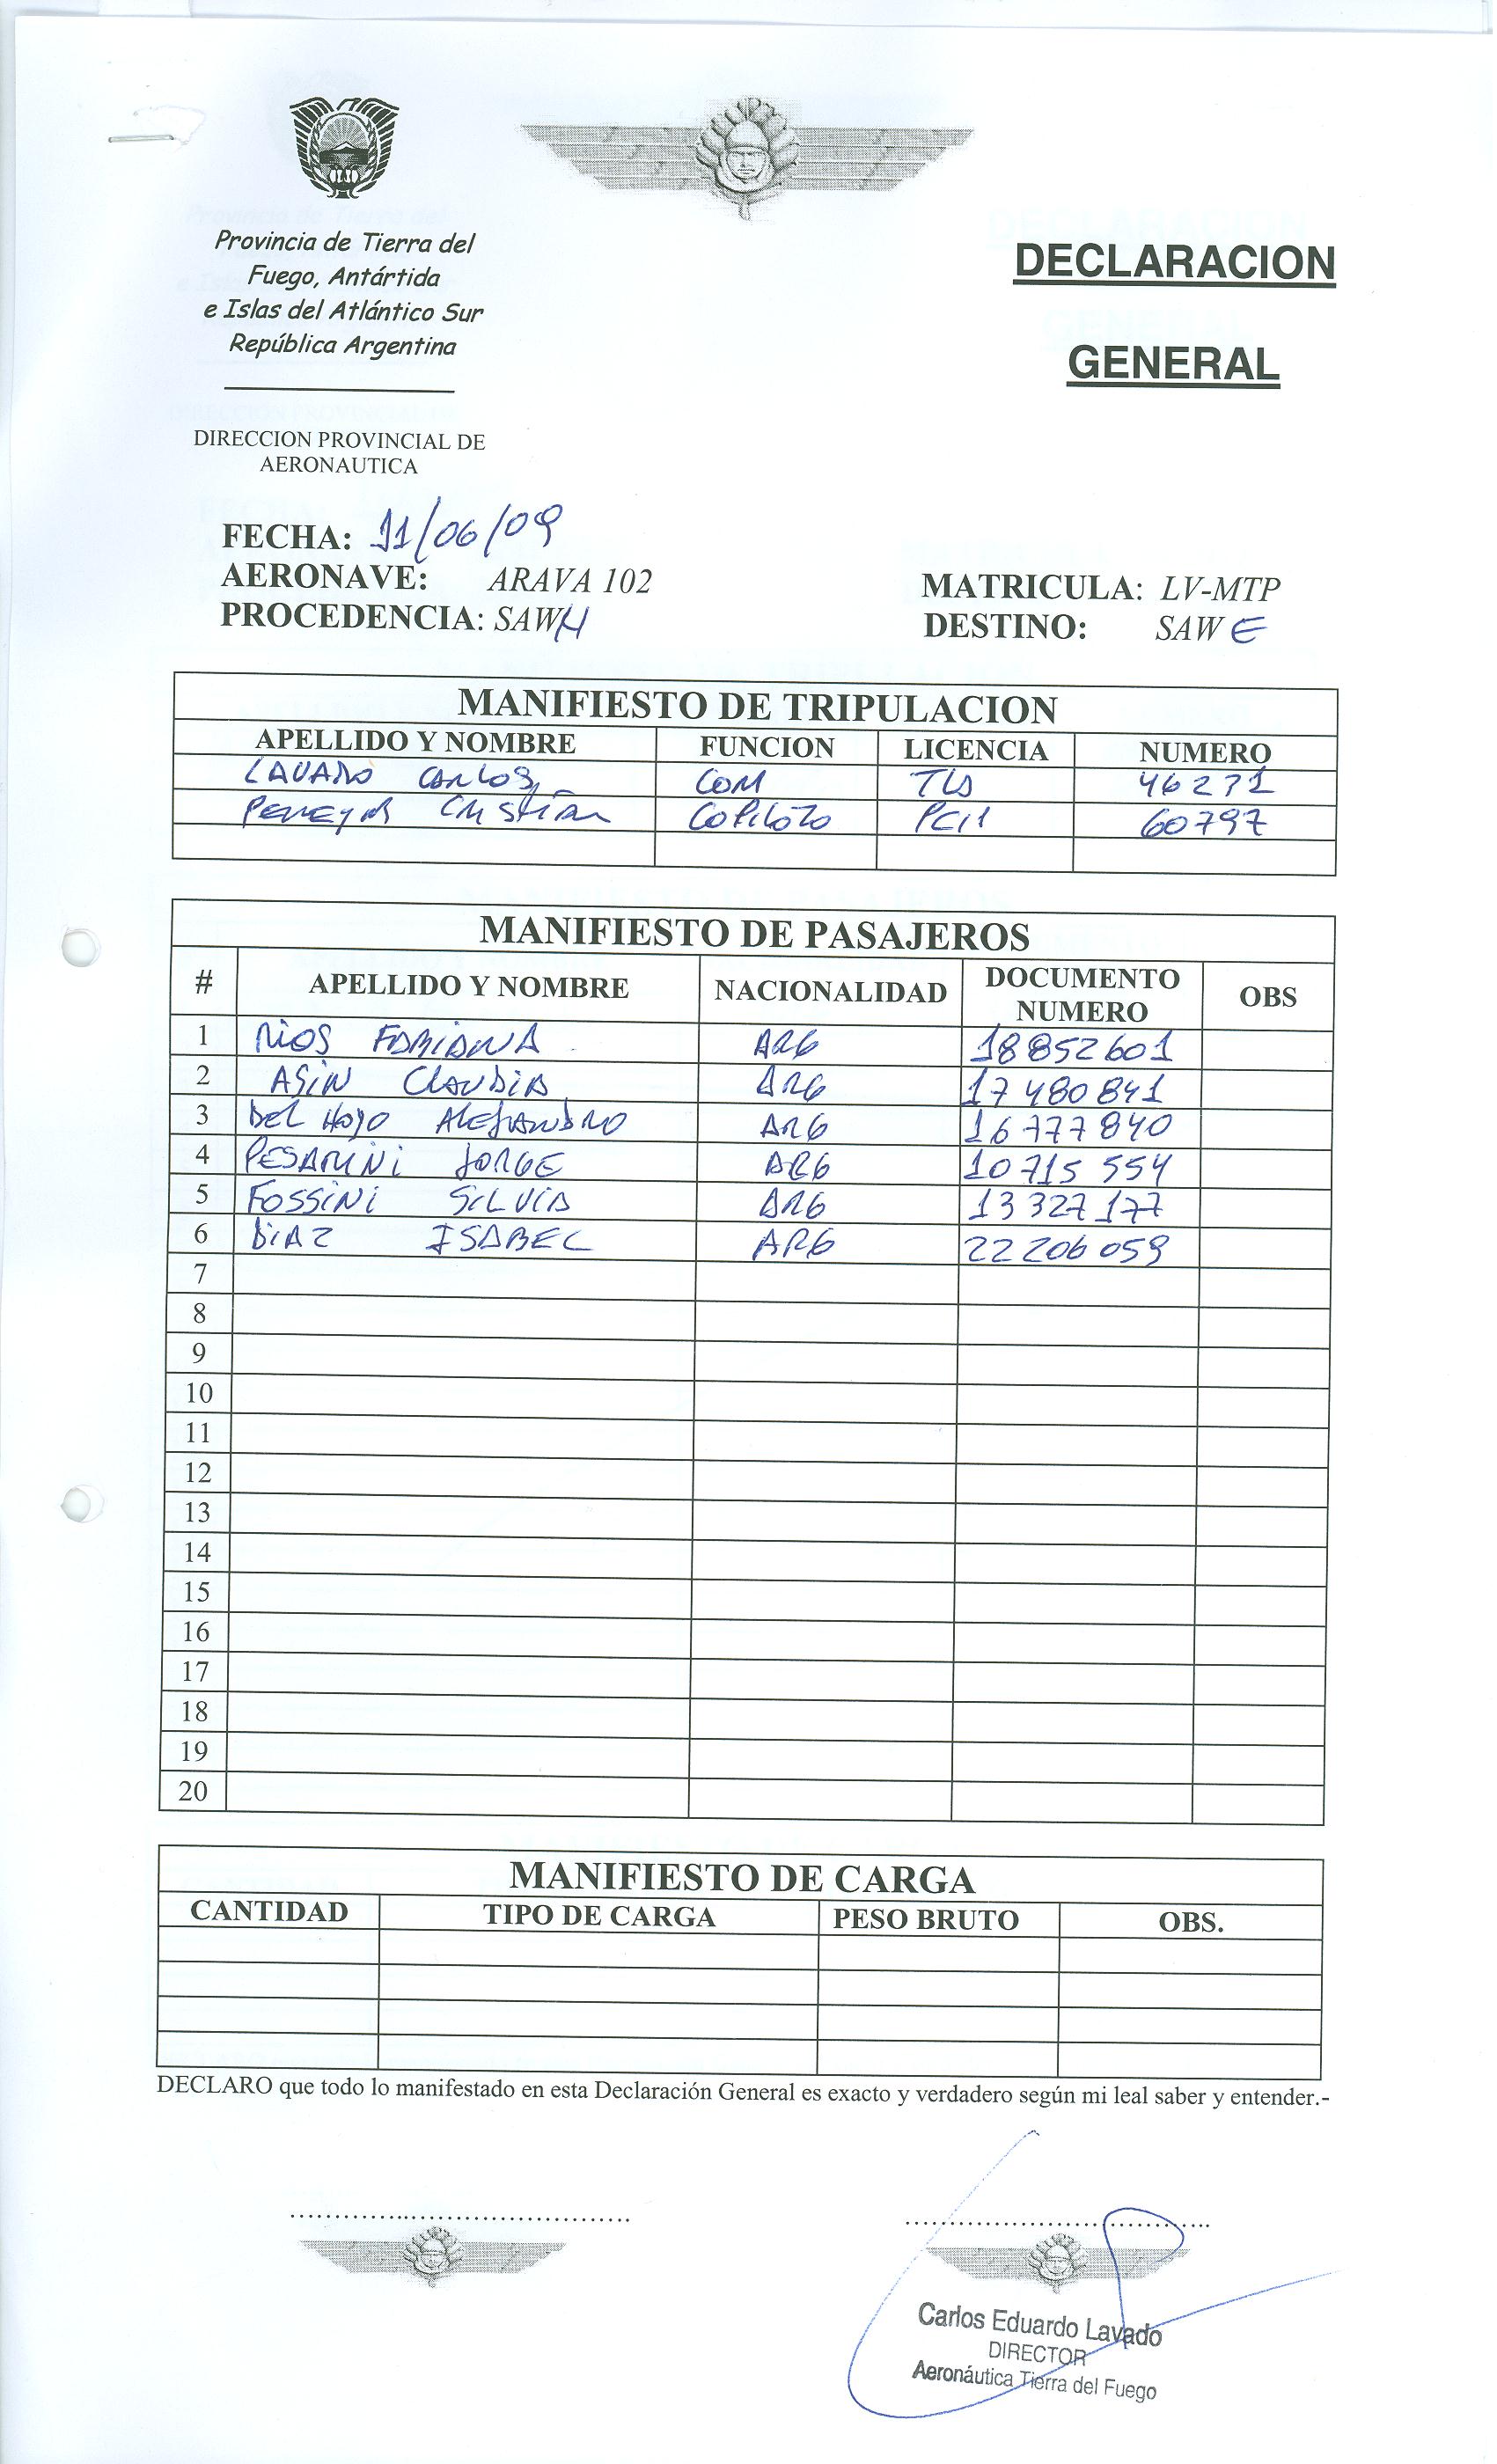 Provincia de Tierra del
Fuego, Antártida
e Islas del Atlántico Sur
República Argentina
DECLARACION
GENERAL
DIRECCION PROVINCIAL DE
AERONAUTICA
FECHA: 11/06/09
AERONAVE: ARAVA 102
MATRICULA: LV-MTP
PROCEDENCIA: SAWH
DESTINO: SAWE
MANIFIESTO DE TRIPULACION
APELLIDO Y NOMBRE FUNCION LICENCIA NUMERO
LAVADO CARLOS COM TLA 46271
PEREYRA CRISTIAN COPILOTO PCH 60797
MANIFIESTO DE PASAJEROS
# APELLIDO Y NOMBRE NACIONALIDAD DOCUMENTO NUMERO OBS
1 RIOS FABIANA ARG 18852601
2 ASIN CLAUDIA ARG 17480841
3 DEL HOYO ALEJANDRO ARG 16777840
4 PESARINI JORGE ARG 10715554
5 FOSSINI SILVIA ARG 13327177
6 DIAZ ISABEL ARG 22206059
7
8
9
10
11
12
13
14
15
16
17
18
19
20
MANIFIESTO DE CARGA
CANTIDAD TIPO DE CARGA PESO BRUTO OBS.
DECLARO que todo lo manifestado en esta Declaración General es exacto y verdadero según mi leal saber y entender.-
Carlos Eduardo Lavado
DIRECTOR
Aeronáutica Tierra del Fuego